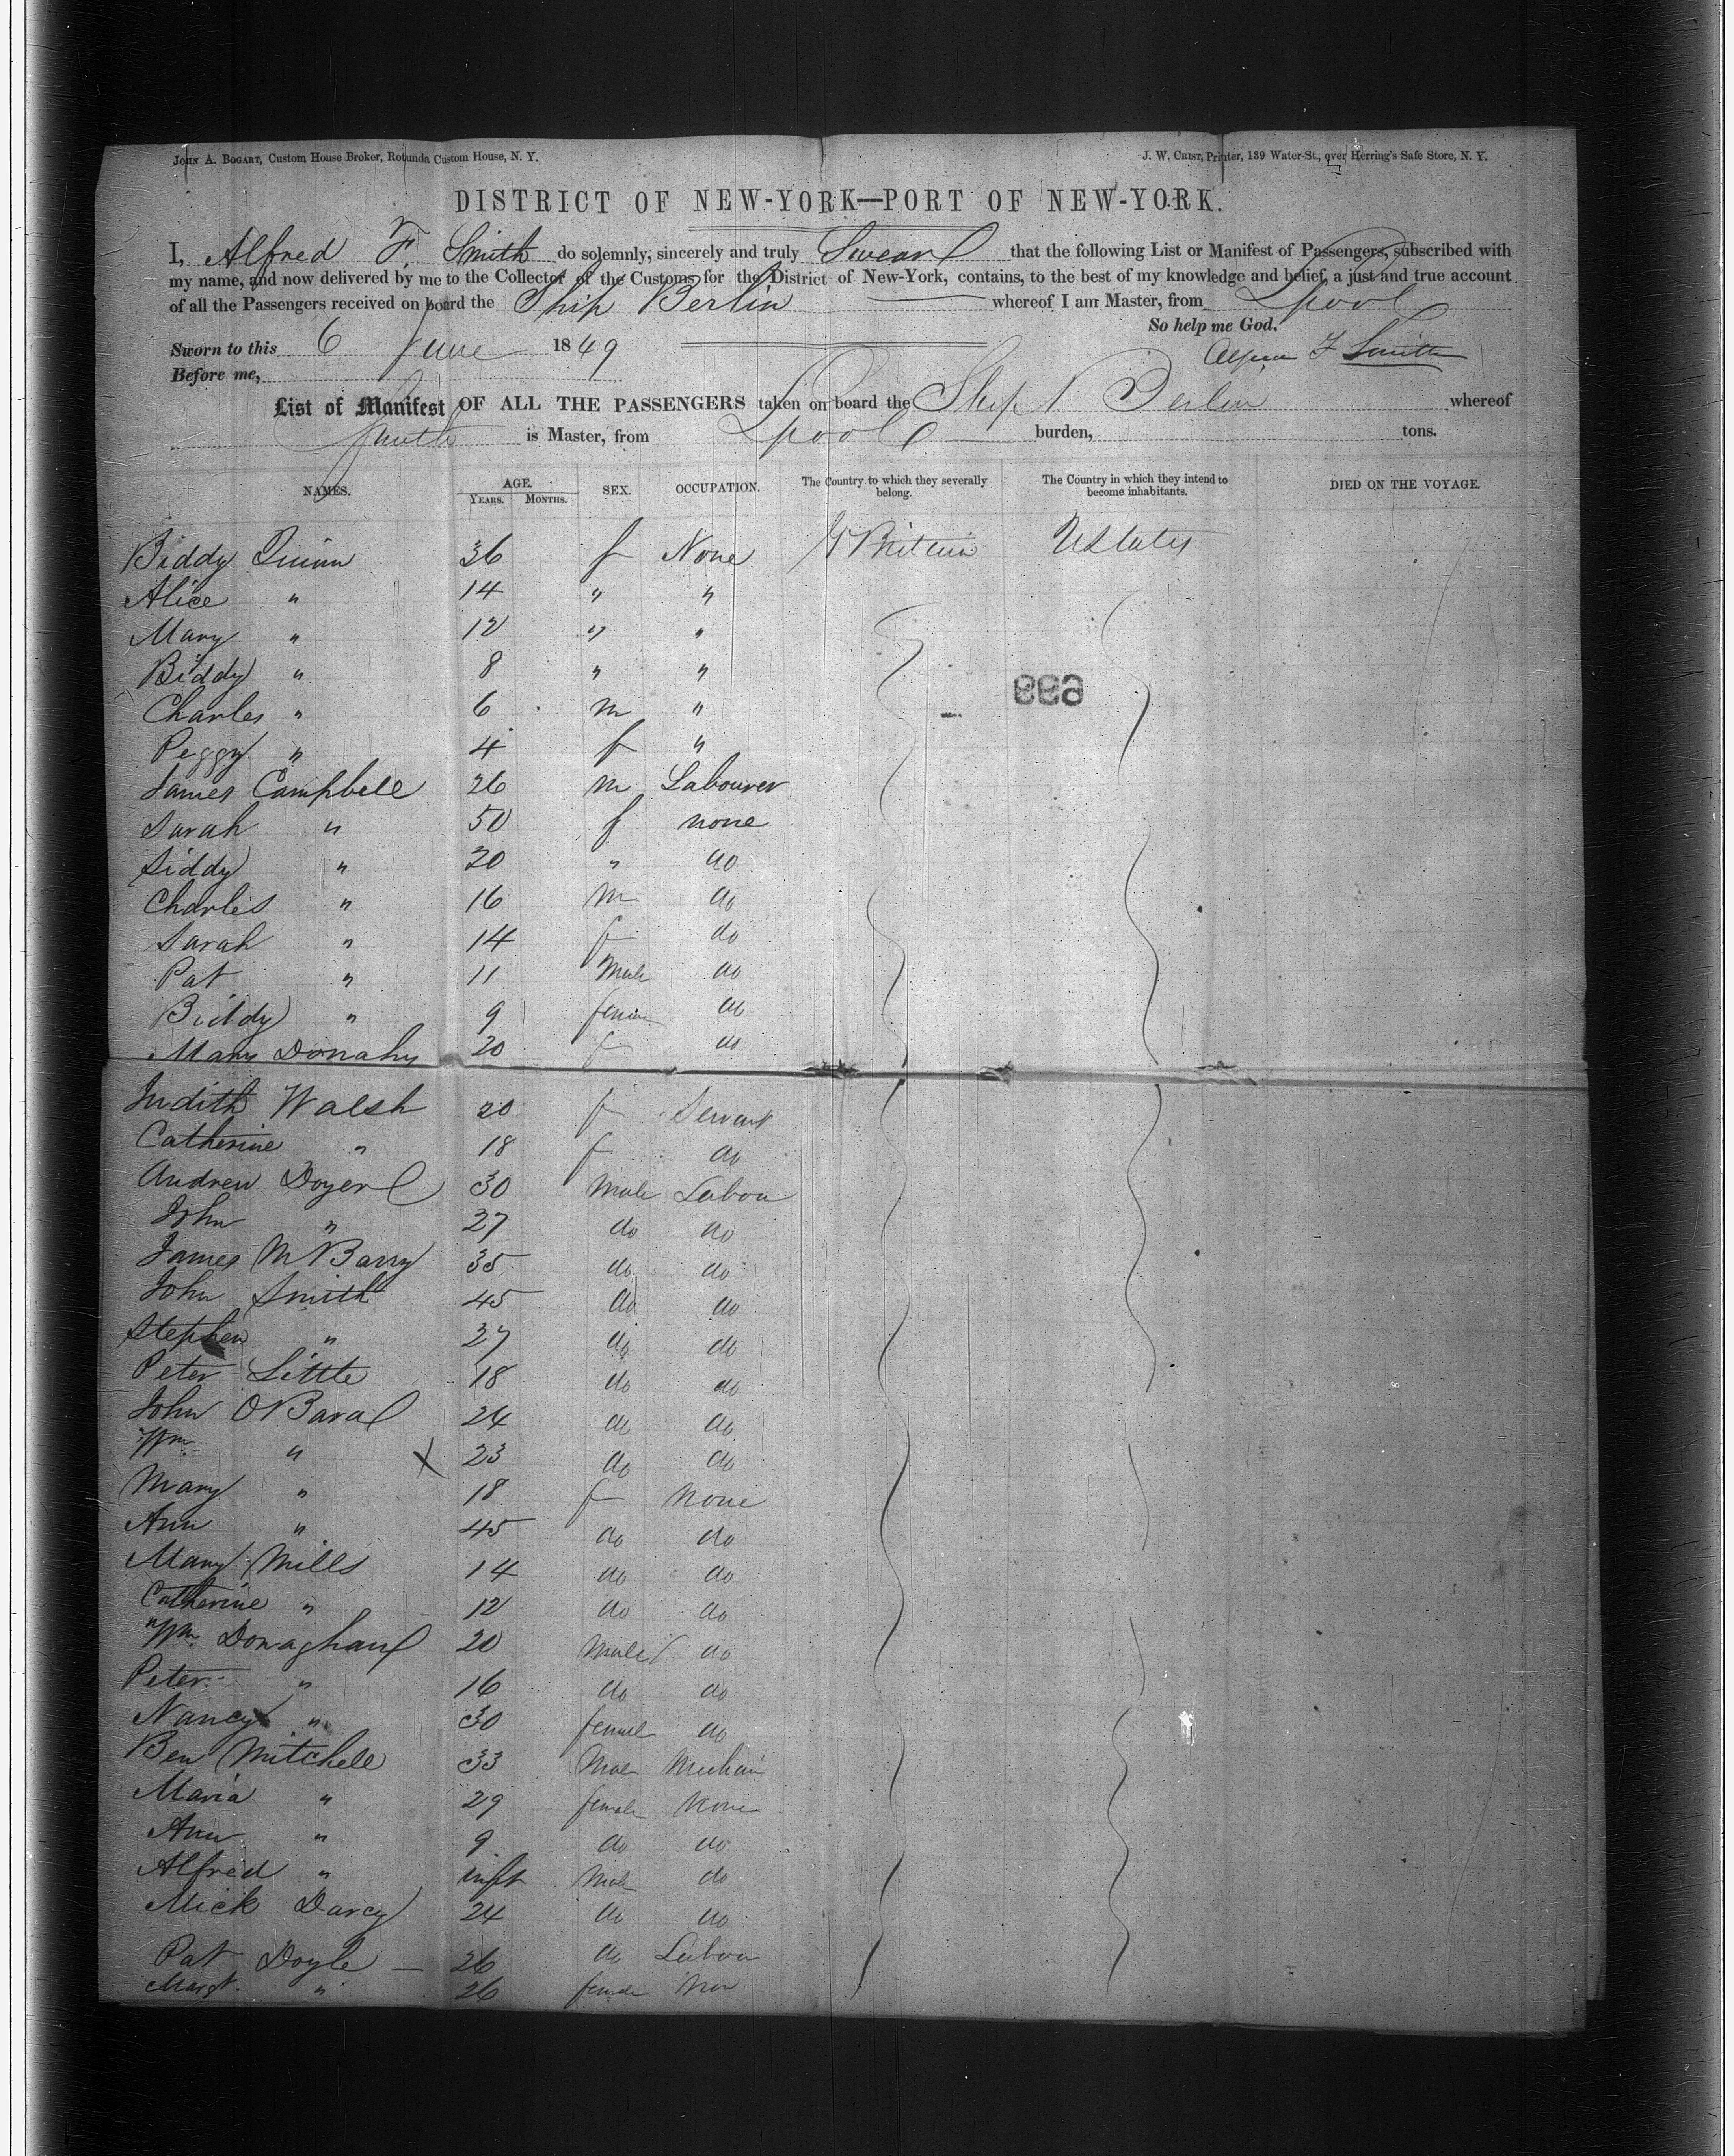 JOHN A. BOGART, Custom House Broker, Rotunda Custom House, N. Y. J. W. CRIST, Printer, 139 Water-St., over Herring's Safe Store, N. Y.
DISTRICT OF NEW-YORK—PORT OF NEW-YORK.
I, Alfred F. Smith do solemnly, sincerely and truly Swear that the following List or Manifest of Passengers, subscribed with
my name, and now delivered by me to the Collector of the Customs for the District of New-York, contains, to the best of my knowledge and belief, a just and true account
of all the Passengers received on board the Ship Berlin whereof I am Master, from Lpool
So help me God.
Sworn to this 6 June 1849 F Smith
Before me,
List of Manifest OF ALL THE PASSENGERS taken on board the Ship Berlin whereof
Smith is Master, from Lpool burden, tons.
NAMES. AGE. YEARS. MONTHS. SEX. OCCUPATION. The Country to which they severally belong. The Country in which they intend to become inhabitants. DIED ON THE VOYAGE.
Biddy Quinn 36 f None G Britain U States
Alice " 14 " "
Mary " 12 " "
Biddy " 8 " "
Charles " 6 m "
Peggy " 4 f "
James Campbell 26 m Labourer
Sarah " 50 f none
Biddy " 20 " do
Charles " 16 m do
Sarah " 14 f do
Pat " 11 Male do
Biddy " 9 do
Mary Donahy 20 f do
Judith Walsh 20 f Servant
Catherine " 18 f do
Andrew 30 Male Labou
John " 27 do do
James McBarry 35 do do
John Smith 45 do do
Stephen " 27 do do
Peter Little 18 do do
John O'Bara 24 do do
Wm " X 23 do do
Mary " 18 f None
Ann " 45 do do
Mary Mills 14 do do
Catherine " 12 do do
Wm Donaghan 20 Male do
Peter " 16 do do
Nancy " 30 femal do
Ben Mitchell 33 Male
Maria " 29 female None
Ann " 9 do do
Alfred " inft Male do
Mick Darcy 24 do do
Pat Doyle — 26 do Labou
Margt " 26 female Non